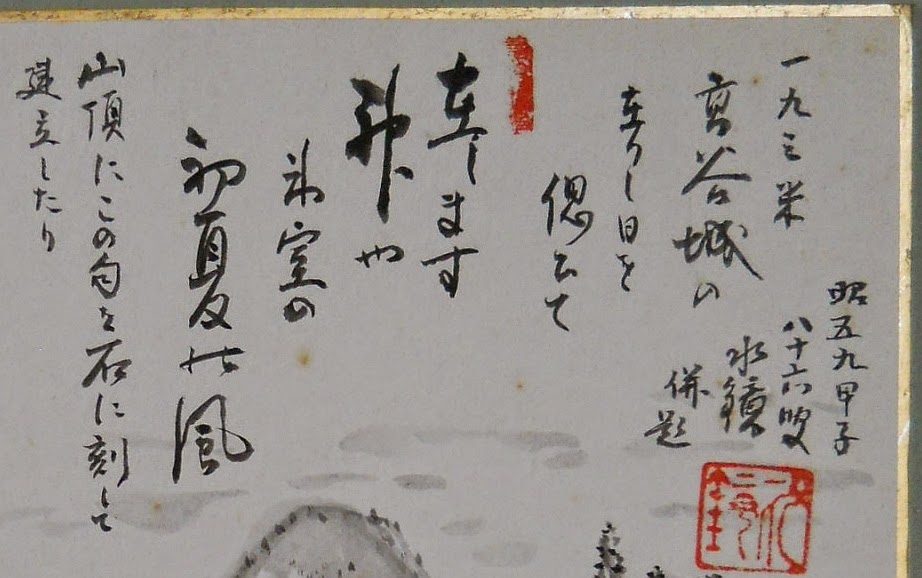 一九三米
高谷城の
在りし日を
偲びて
在します
神や
氷室の
初夏の風
山頂にこの句を石に刻して
建立したり
昭五九甲子
八十六叟
水鏡
併題